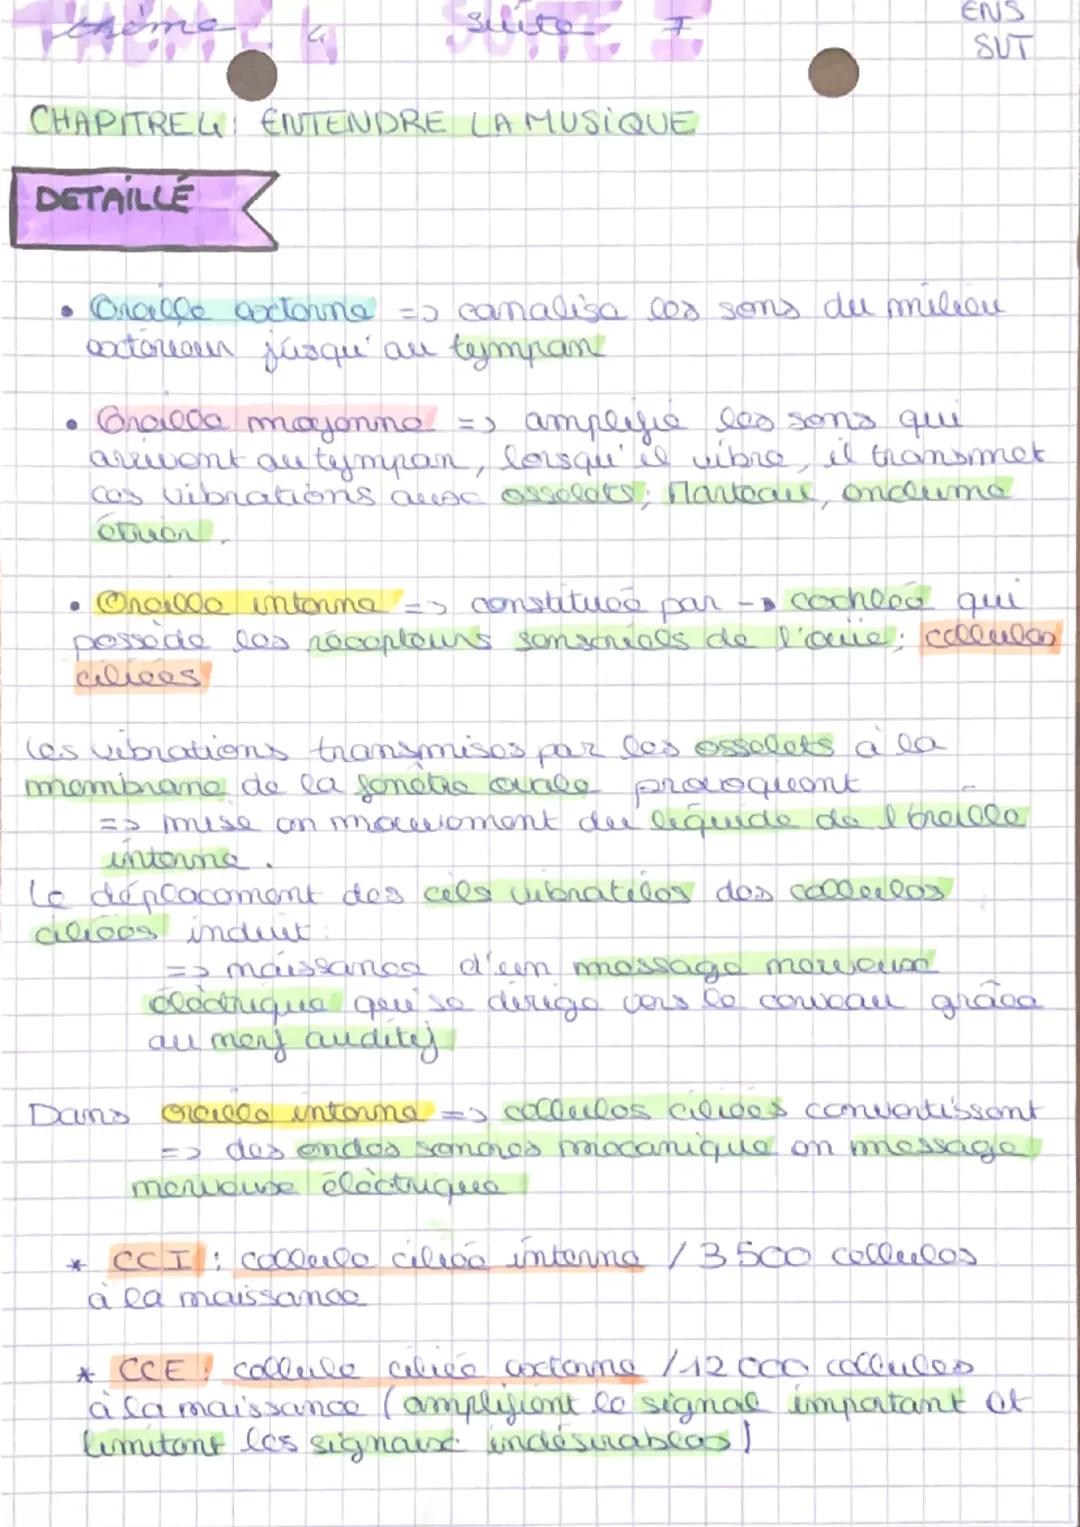 thème 4 suite I
ENS
SVT
CHAPITRE 4 : ENTENDRE LA MUSIQUE
DETAILLÉ
• Oreille externe => canalise les sons du milieu
extérieur jusqu'au tympan
• Oreille moyenne => amplifie les sons qui
arrivent au tympan, lorsqu'il vibre, il transmet
ces vibrations aux osselets : Marteau, enclume
étrier.
• Oreille interne => constituée par -> cochlée qui
possède les récepteurs sensoriels de l'ouïe : cellules
ciliées
Les vibrations transmises par les osselets à la
membrane de la fenêtre ovale provoquent
=> mise en mouvement du liquide de l'oreille
interne.
Le déplacement des cils vibratiles des cellules
ciliées induit :
=> naissance d'un message nerveux
électrique qui se dirige vers le cerveau grâce
au nerf auditif
Dans oreille interne => cellules ciliées convertissent
=> des ondes sonores mécanique en message
nerveuse électrique
* CCI : cellule ciliée interne / 3 500 cellules
à la naissance
* CCE : cellule ciliée externe / 12 000 cellules
à la naissance (amplifient le signal important et
limitent les signaux indésirables)